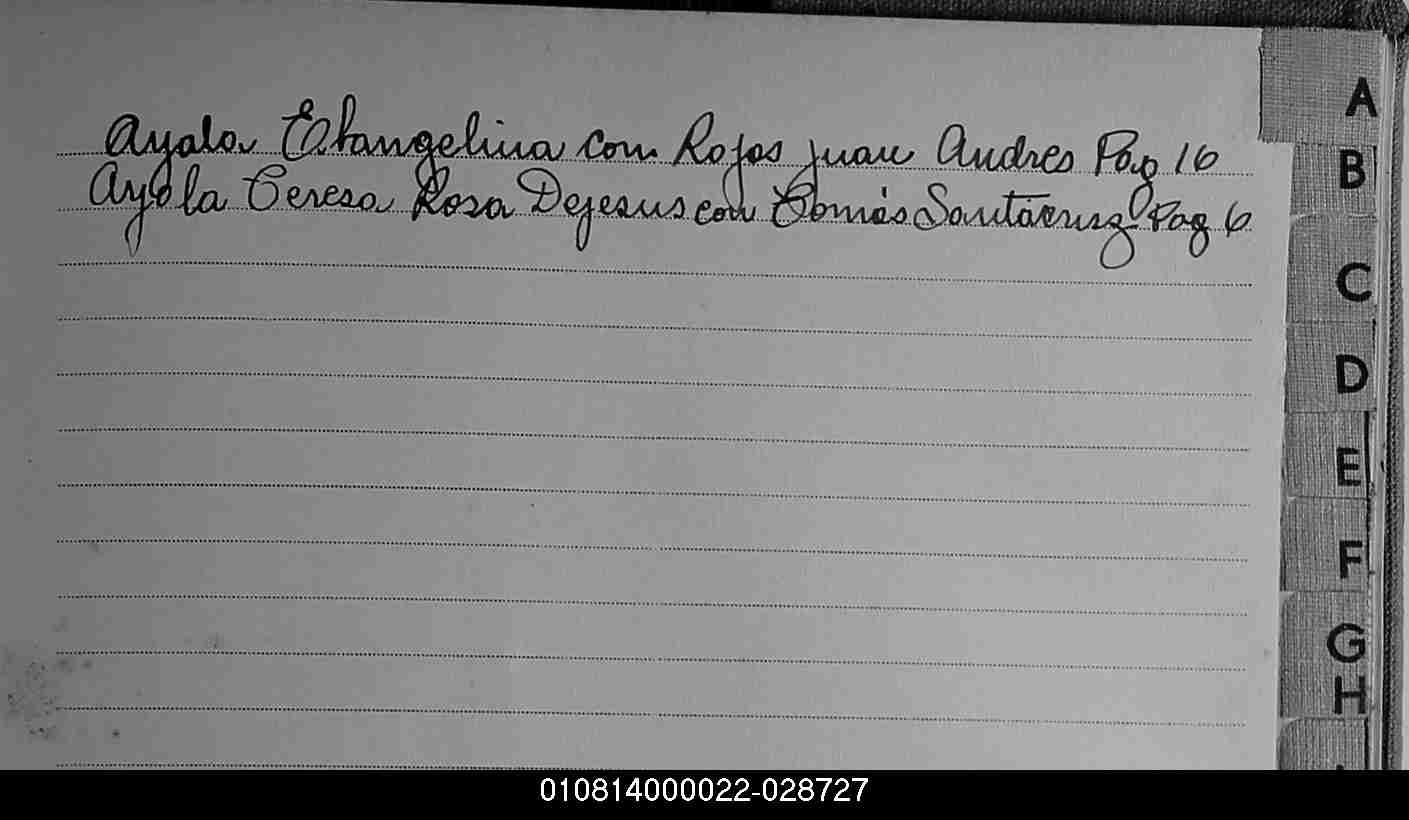 Ayala Ebangelina con Rojas juan Andres Pag 16
Ayala Teresa Rosa Dejesus con Tomás Santacruz Pag 6
A
B
C
D
E
F
G
H
010814000022-028727